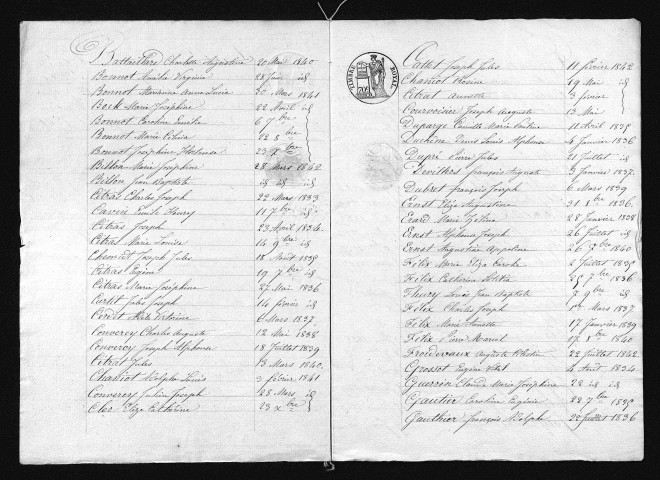 Battailllard Charlotte Augustine 20 Mai 1840
Bonnot Amélie Virginie 28 Juin id
Bonnot Anna Lucia 20 Mars 1841
Bock Marie Josephine 22 Avril id
Bonnot Caroline Emélie 6 7bre
Bonnot Marie 22 8bre
Bonnot Joséphine Hortense 23 xbre
Billon Marie Joséphine 28 Mars 1842
Billon Jean Baptiste id id id
Citras Charles Joseph 22 Mars 1833
Cavin Emile Henry 11 7bre id
Citras Joseph 23 Avril 1834
Citras Marie Louise 14 9bre id
Joseph Jules 18 Août 1835
Citras Eugène 19 7bre id
Citras Marie Joséphine 27 Mai 1836
Curlit Jules Joseph 14 février id
Victorine 6 Mars 1837
Convercy Charles Auguste 12 Mai 1838
Convercy Joseph Alphonse 18 Juillet 1839
Citras Jules 13 Mars 1840
Chaviot Adolphe Louis 3 février 1841
Convercy Julien Joseph 28 Mars id
Clos Eliza Catherine 23 xbre
TIMBRE ROYAL
Cattet Joseph Jules 11 février 1842
Chaviot Rosine 19 Mai id
Citras Annette 3 février
Courvoisier Joseph Auguste 13 Mai
Duparge Camille Marie 11 Avril 1835
Denis Louis Alphonse 4 Janvier 1836
Dupré Pierre Jules 21 Juillet id
Devillers François Auguste 3 Janvier 1837
Dubret François Joseph 6 Mars 1839
Ernst Eliza Augustine 21 8bre 1836
Erard Marie Zéline 28 Janvier 1838
Ernst Alphonse Joseph 26 Juillet id
Ernst Augustine Appoline 26 7bre 1840
Félix Marie Eliza 2 Juillet 1835
Félix Catherine 25 7bre 1836
Fleury Louis Jean Baptiste 7 9bre id
Félix Charles Joseph 1er Mars 1837
Félix Marie Annette 17 Janvier 1839
Félix Pierre Marcel 17 1840
Froidevaux Auguste Célestin 22 Juillet 1842
Grosset Eugène Vital 4 Avril 1834
Guerrin Claude Marie Joséphine 22 id id
Gautier Caroline Eugénie 22 7bre 1835
Gauthier François Adolphe 20 Juillet 1836